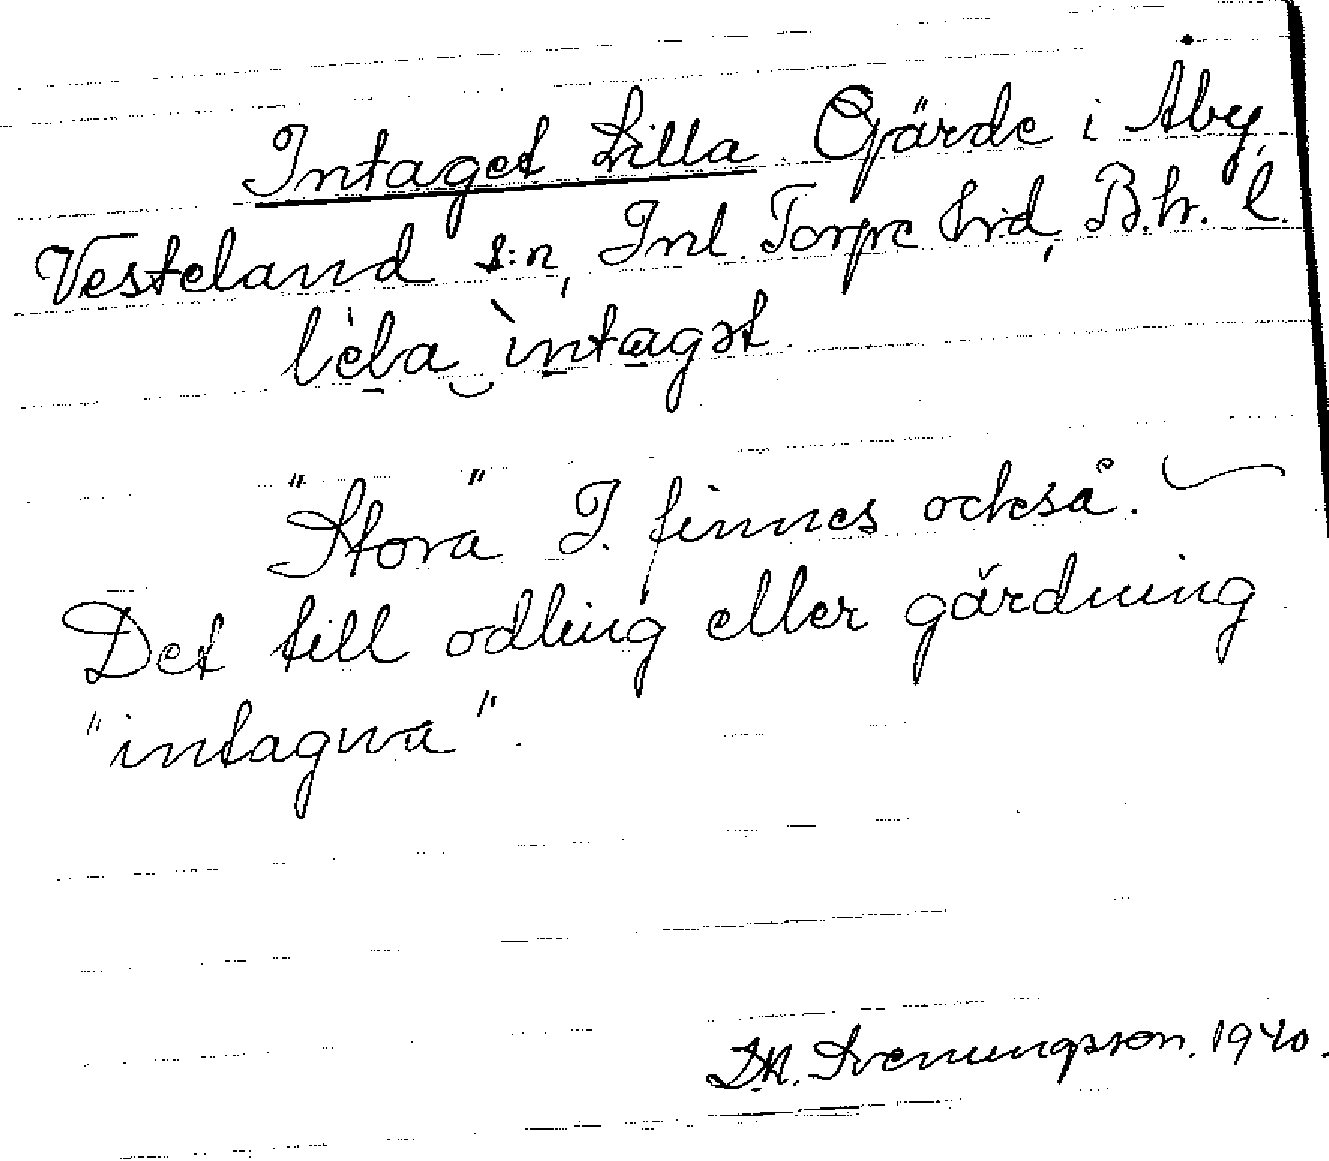 Intaget Lilla Gärde i Åby,
Vesteland s:n, Inl. Torpe Hrd, B.hr. l.
lɩ̀ḷa ìntagət
"Stora" I. finnes också.
Det till odling eller gärdning
"intagna".
D.A. Svenungsson. 1940.